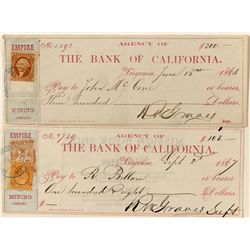 AGENCY OF
No. 1592 $200
THE BANK OF CALIFORNIA.
EMPIRE
Virginia, June 15th 1865
Pay to John McCone or bearer,
Hundred Dollars
MINING
COMPANY
R. M. Graves
AGENCY OF
No. 4739 $108
THE BANK OF CALIFORNIA.
EMPIRE
Virginia, Sept 2d 1867
Pay to R. or bearer,
One hundred & eight Dollars
MINING
COMPANY
R M Graves Supt